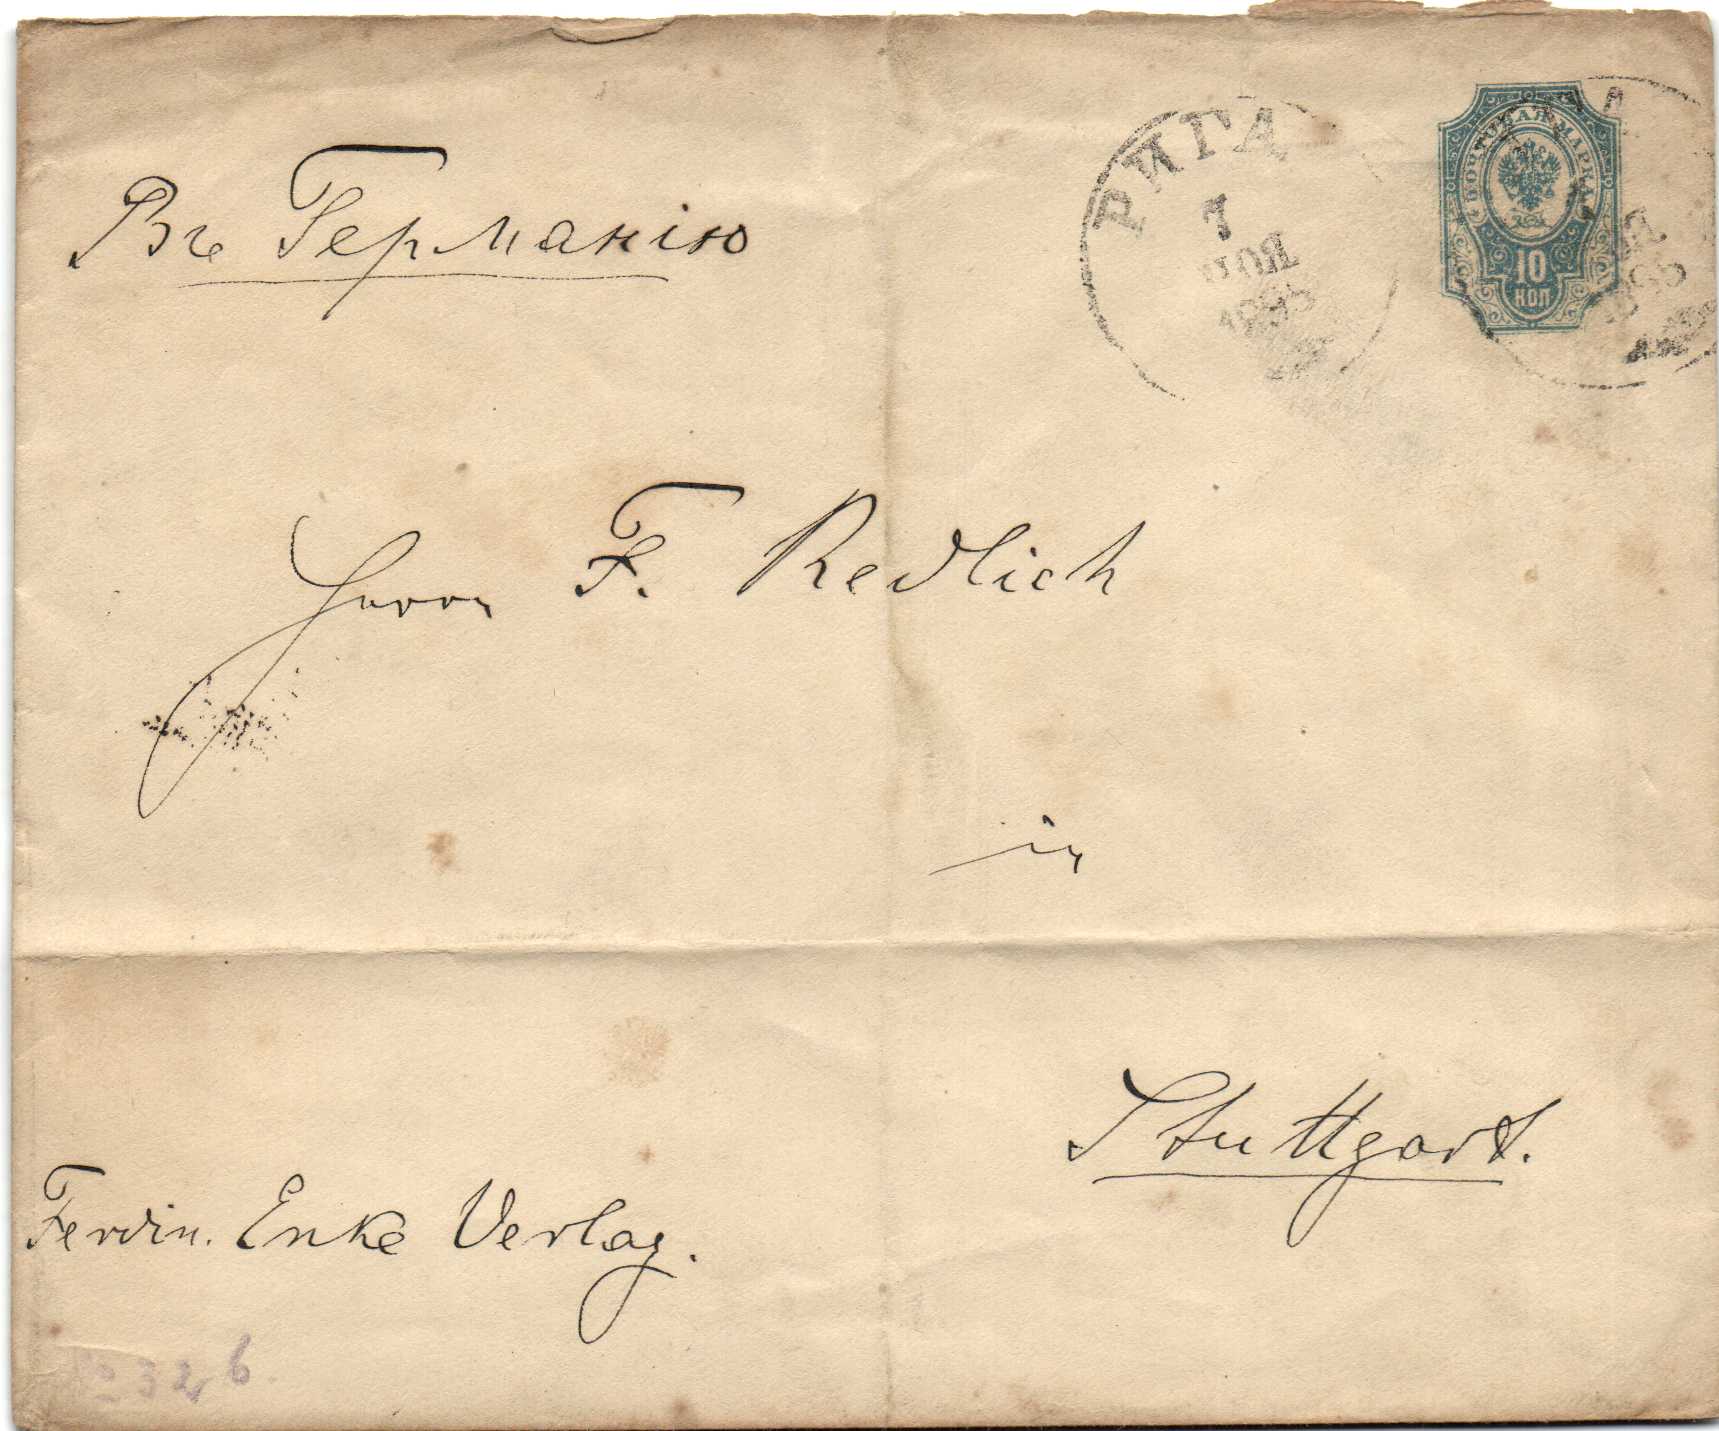 Въ Германію
РИГА
7
НОЯ
1895
ПОЧТОВАЯ МАРКА
10
КОП
Herrn F. Redlich
in
Stuttgart.
Ferdin. Enke Verlag.
№ 326